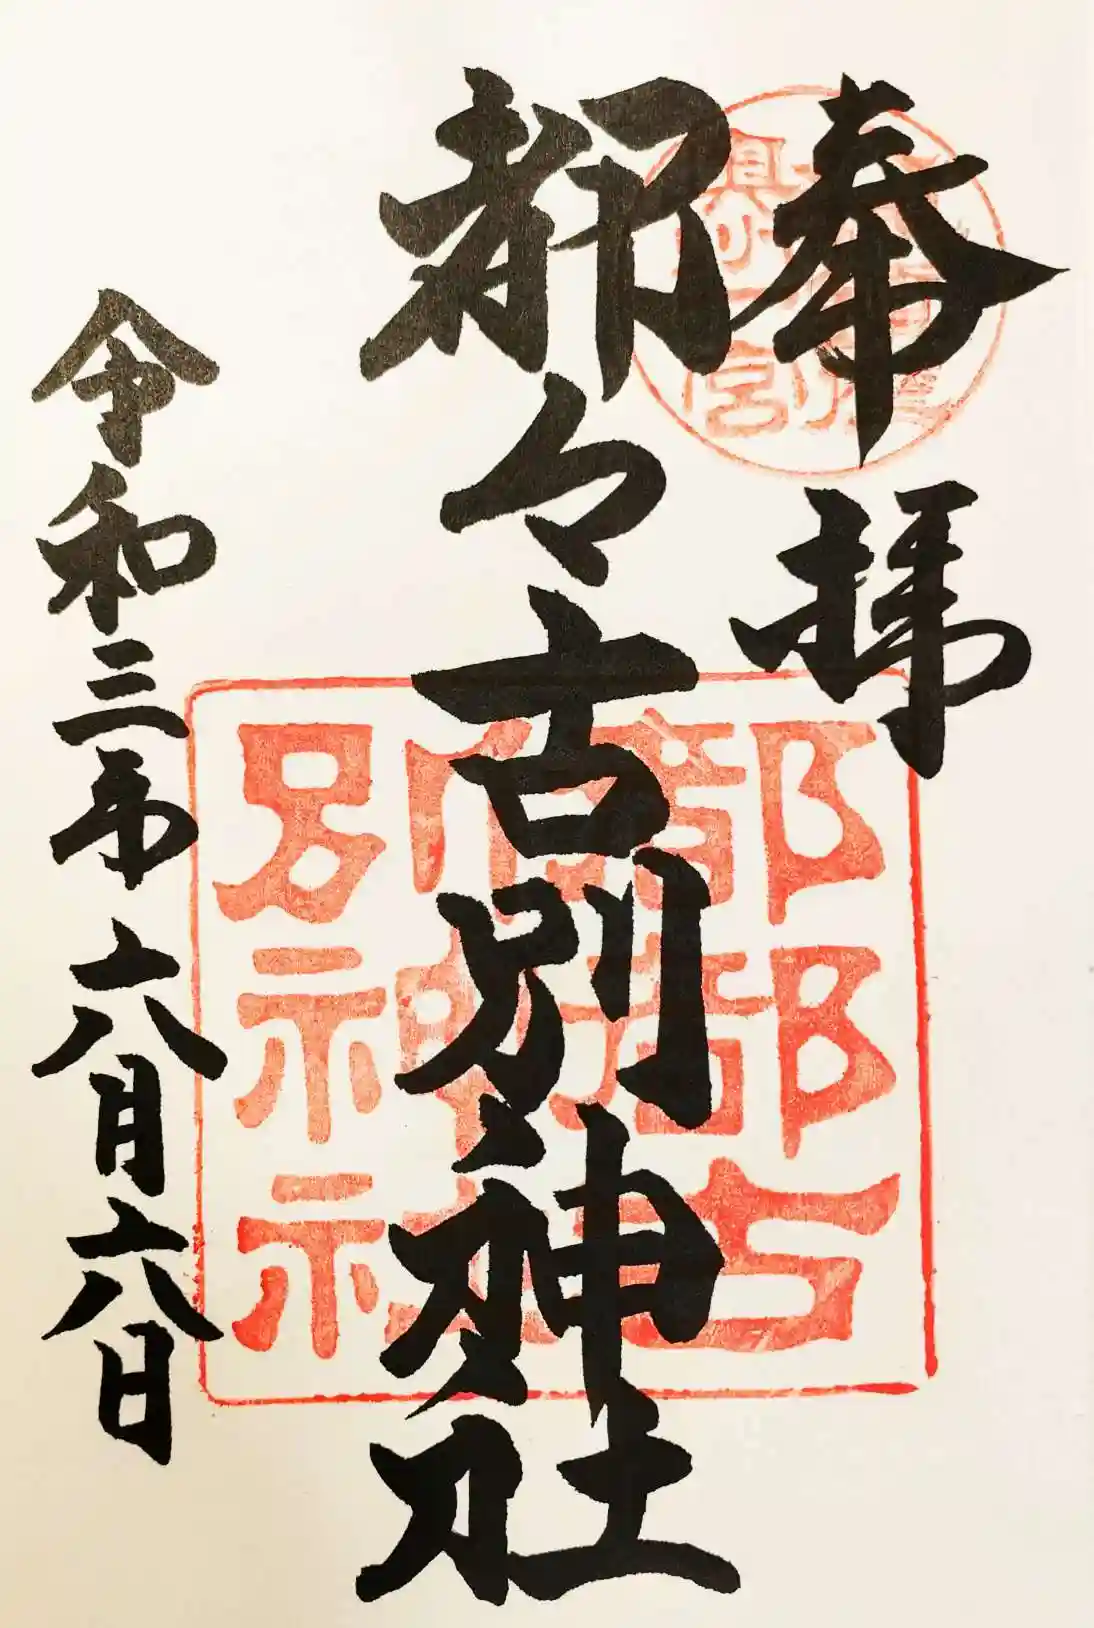 奉拝
都々古別神社
令和三年六月六日
都都古別神社